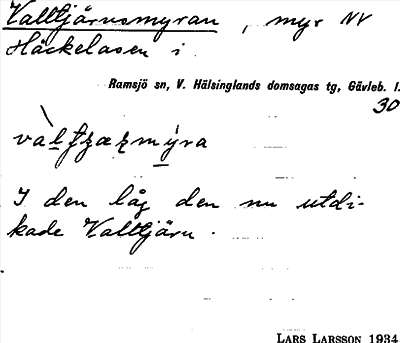 Valltjärnsmyran, myr NV
Häckelasen i
Ramsjö sn, V. Hälsinglands domsagas tg, Gävleb. l.
30
I den låg den nu utdi-
kade Valltjärn.
LARS LARSSON 1934